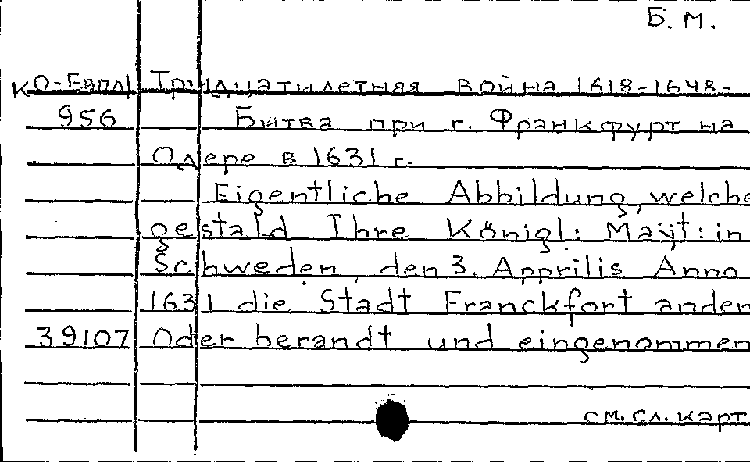 Б. М.
КО-Евпл Тридцатилетняя война 1618-1648-
956 Битва при г. Франкфурт на
Одере в 1631 г.
Eigentliche Abbildung, welche
gestald Ihre Königl: Mayt: in
Schweden, den 3. Apprilis Anno
1631 die Stadt Franckfort ander
39107 Oder berandt und eingenommen
см. сл. карт